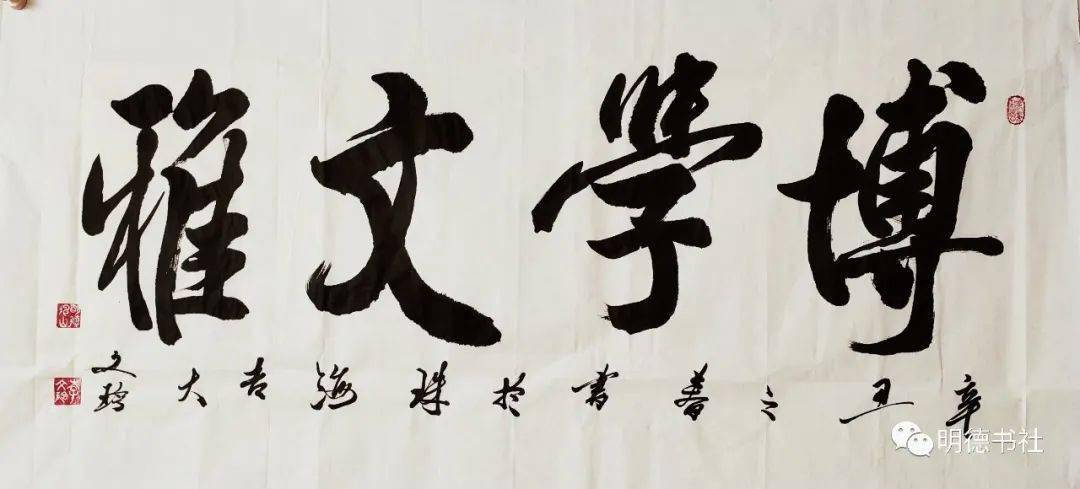 博學文雅
辛丑之春書於珠海吉大文
明德书社